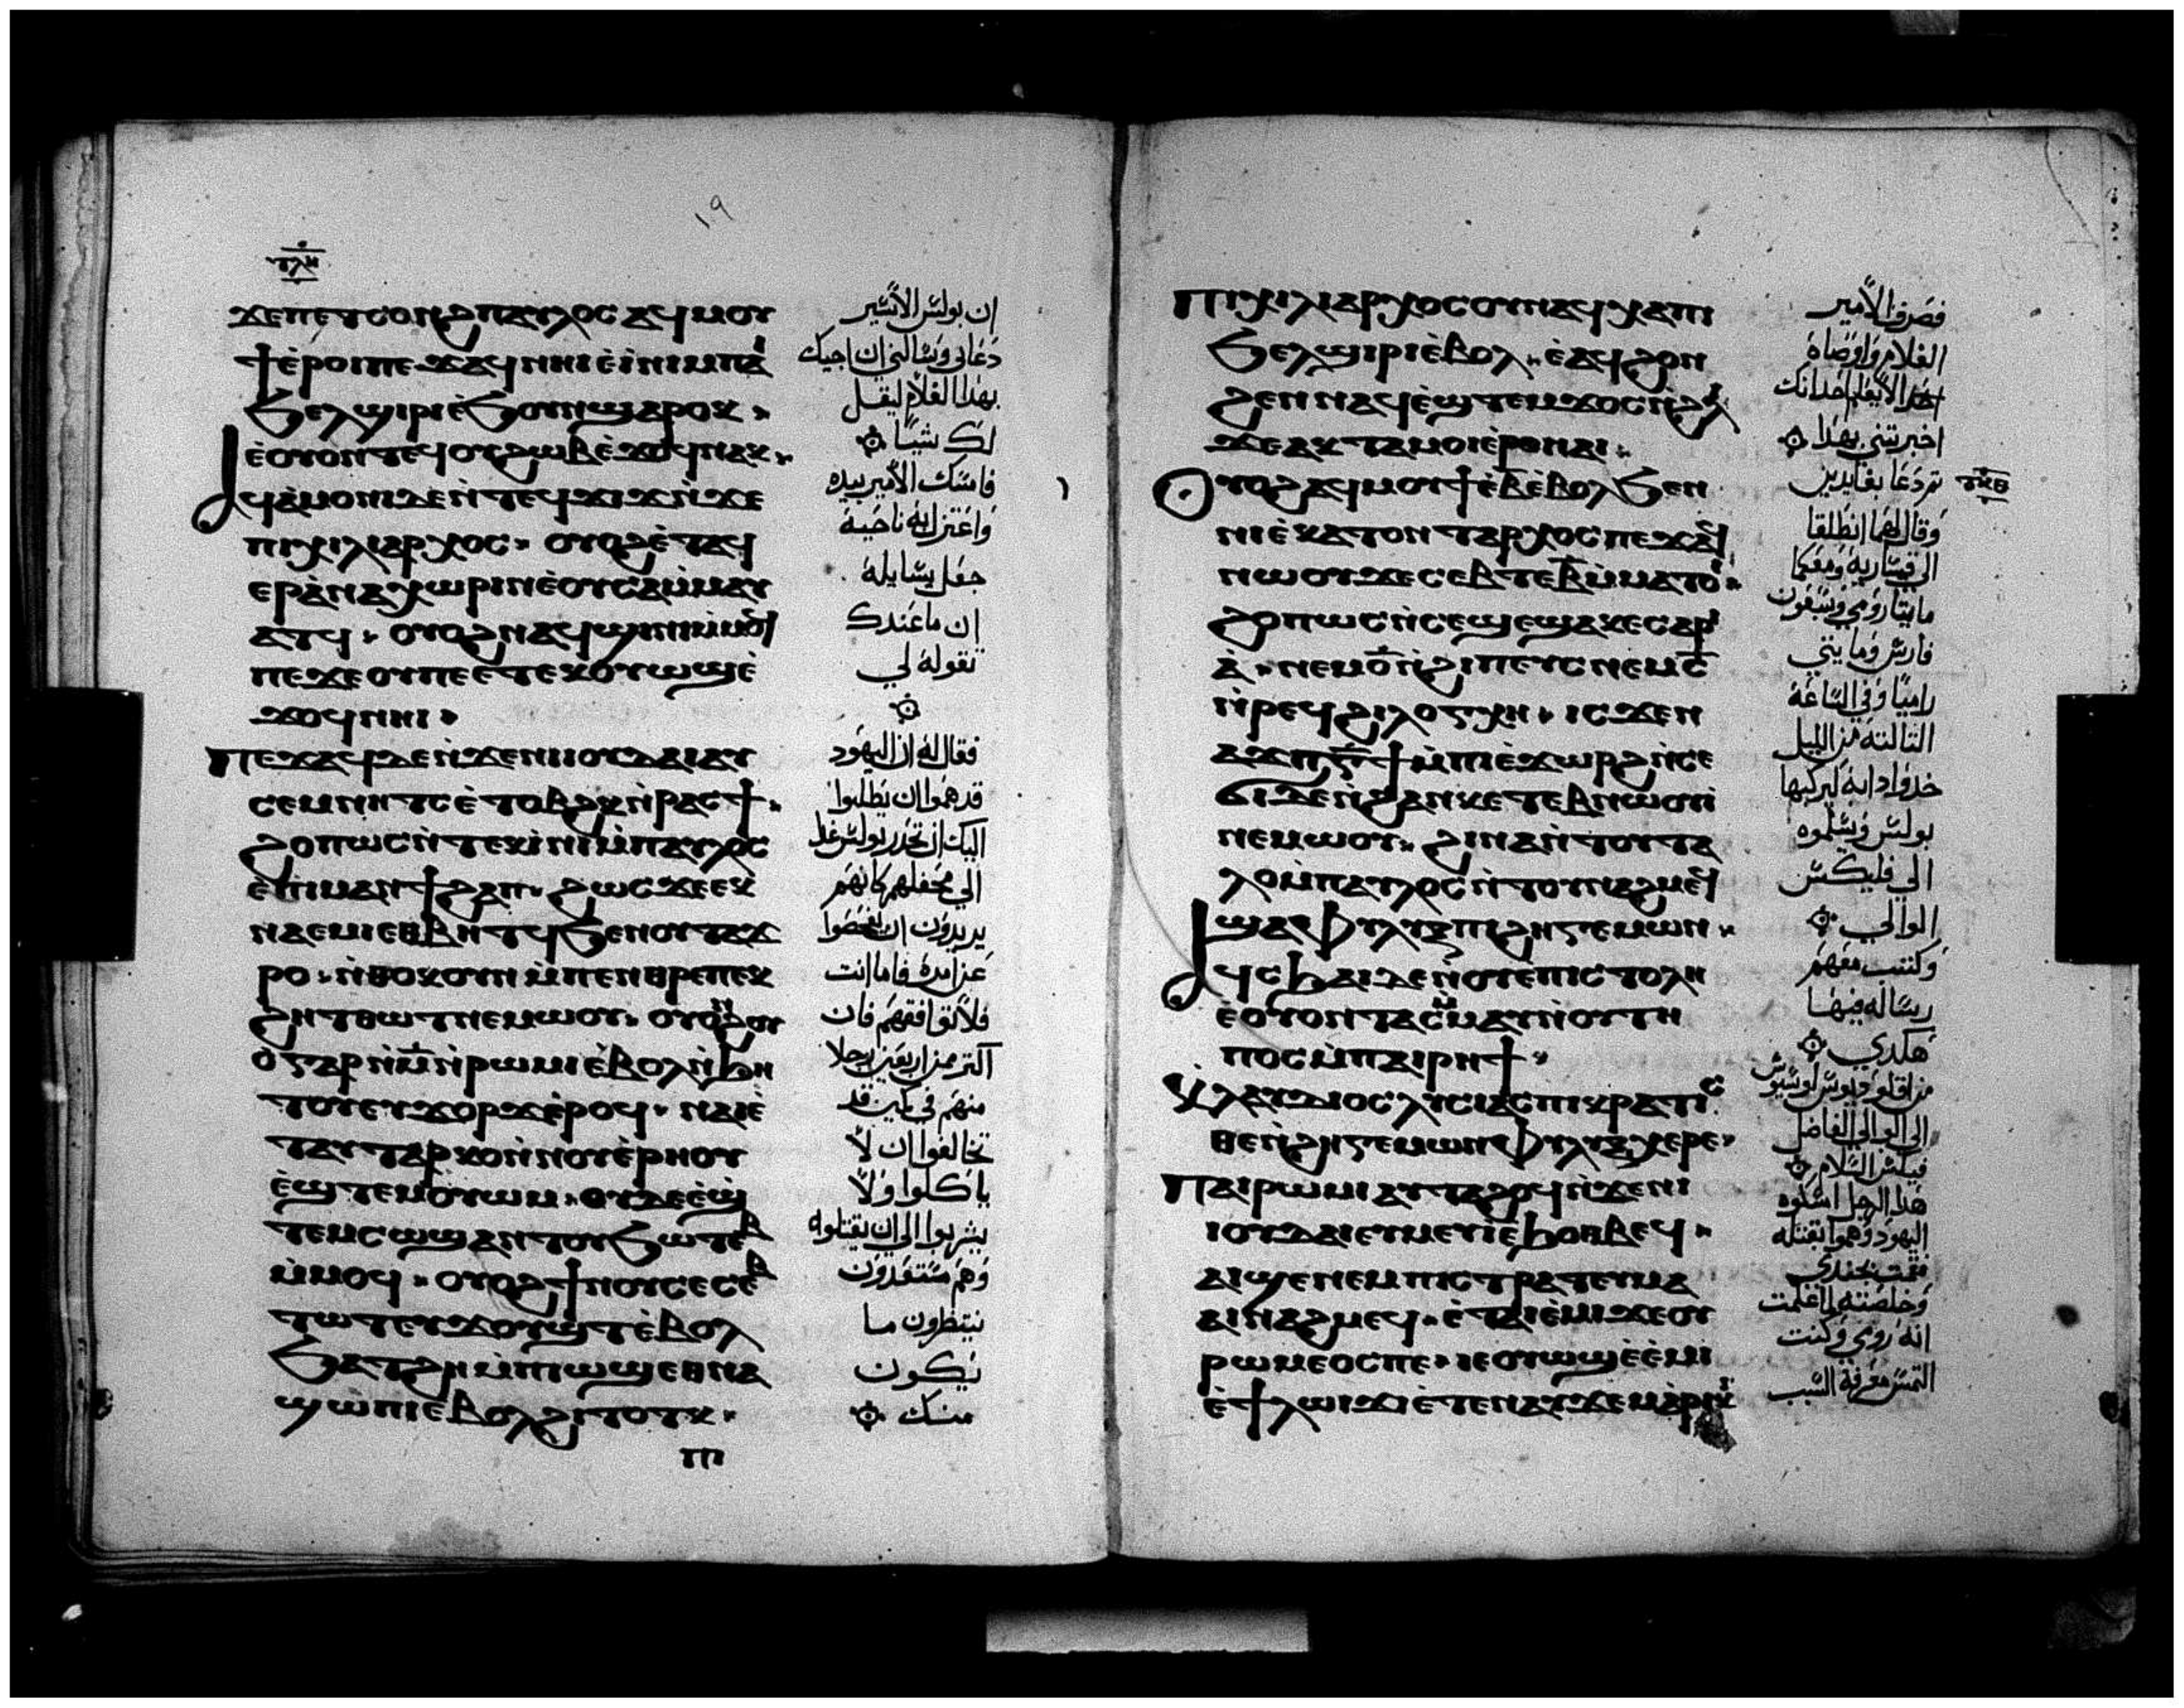 ١٩
ϫⲉⲡⲉⲧⲥⲟⲛϩⲡⲁⲩⲗⲟⲥ ⲁϥⲙⲟⲩ
ϯⲉ̀ⲣⲟⲓⲡⲉϫⲁϥⲛⲏⲓⲉ̀ⲓ̀ⲛⲓⲙⲡⲁⲓ
ϧⲉⲗϣⲓⲣⲓⲉ̀ϧⲟⲩⲛϣⲁⲣⲟⲕ
ⲉ̀ⲟⲩⲟⲛⲧⲉϥⲟⲩϩⲱⲃⲉ̀ϫⲟϥⲛⲁⲕ
ⲁϥⲁ̀ⲙⲟⲛⲓⲇⲉⲛ̀ⲧⲉϥϫⲓϫⲛ̀ϫⲉ
ⲡⲓⲭⲓⲗⲓⲁⲣⲭⲟⲥ ⲟⲩⲟϩⲉ̀ⲧⲁϥ
ⲉⲣⲁ̀ⲛⲁⲭⲱⲣⲓⲛⲉ̀ⲟⲩⲥⲁⲙ̀ⲙⲁⲩ
ⲁⲧϥ ⲟⲩⲟϩⲛⲁϥϣⲓⲛⲓⲙ̀ⲙⲟϥ
ⲡⲉϫⲉⲟⲩⲡⲉⲉⲧⲉⲕⲟⲩⲱϣⲉ̀
ϫⲟϥⲛⲏⲓ
ⲡⲉϫⲁϥⲇⲉⲛ̀ϫⲉⲛⲓⲓⲟⲩⲇⲁⲓⲁⲩ
ⲥⲉⲙⲛⲏⲧⲥⲉ̀ⲧⲟⲃϩⲕⲛ̀ⲣⲁⲥϯ
ϩⲟⲡⲱⲥⲛ̀ⲧⲉⲕⲓ̀ⲛⲓⲙ̀ⲡⲁⲩⲗⲟⲥ
ⲉ̀ⲡⲓⲙⲁⲛϯϩⲁⲡ ϩⲱⲥϫⲉⲉⲕ
ⲛⲁⲉⲙⲓⲉⲑⲃⲏⲧϥϧⲉⲛⲟⲩⲧⲁϫ
ⲣⲟ ⲛ̀ⲑⲟⲕⲟⲩⲛⲙ̀ⲡⲉⲛⲑⲣⲉⲡⲉⲕ
ϩⲏⲧⲑⲱⲧⲛⲉⲙⲱⲟⲩ ⲟⲩⲟⲛϩⲟⲩ
ⲟ̀ⲅⲁⲣⲛ̀ⲙ̅ⲛ̀ⲣⲱⲙⲓⲉ̀ⲃⲟⲗⲛ̀ϧⲏ
ⲧⲟⲩⲉⲩϫⲟⲣϫⲉ̀ⲣⲟϥ ⲛⲁⲓⲉ̀
ⲧⲁⲩⲧⲁⲣⲕⲟⲛ̀ⲛⲟⲩⲉ̀ⲣⲏⲟⲩ
ⲉ̀ϣⲧⲉⲙⲟⲩⲱⲙ ⲟⲩⲇⲉⲉ̀ϣ
ⲧⲉⲙⲥⲱϣⲁⲛⲧⲟⲩϧⲱⲧⲉⲃ
ⲙ̀ⲙⲟϥ ⲟⲩⲟϩϯⲛⲟⲩⲥⲉⲥⲉⲃ
ⲧⲱⲧⲉⲩϫⲟⲩϣⲧⲉ̀ⲃⲟⲗ
ϧⲁⲧϩⲏⲙ̀ⲡⲓⲱϣⲉⲑⲛⲁ
ϣⲱⲡⲓⲉ̀ⲃⲟⲗϩⲓⲧⲟⲧⲕ
ⲡⲓ
ان بولس الاسير
دعاني وسالني ان اجيك
بهذا الغلام ليقل
لك شيئا
فامسك الامير بيده
واعتزل به ناحية
جعل يسايله
ان ما عندك
تقوله لي
فقال له ان اليهود
قد هموا ان يطلبوا
اليك ان تحدر بولس غدا
الي محفلهم كانهم
يريدون ان يفحصوا
عن امره فاما انت
فلا توافقهم فان
اكتر من اربعين رجلا
منهم في كمين قد
تحالفوا ان لا
ياكلوا ولا
يشربوا الي ان يقتلوه
وهم مستعدون
ينتظرون ما
يكون
منك
ⲡⲓⲭⲓⲗⲓⲁⲣⲭⲟⲥⲟⲩⲛⲁϥⲭⲁⲡⲓ
ϧⲉⲗϣⲓⲣⲓⲉ̀ⲃⲟⲗ ⲉ̀ⲁϥϩⲟⲛ
ϩⲉⲛⲛⲁϥⲉ̀ϣⲧⲉⲙϫⲟⲥⲛ̀ϩⲗⲓ
ϫⲉⲁⲕⲧⲁⲙⲟⲓⲉ̀ⲣⲟⲛⲁⲓ
ⲟⲩⲟϩⲁϥⲙⲟⲩϯⲉ̀ⲃ̅ⲉ̀ⲃⲟⲗϧⲉⲛ
ⲛⲓⲉ̀ⲕⲁⲧⲟⲛⲧⲁⲣⲭⲟⲥⲡⲉϫⲁϥ
ⲛⲱⲟⲩϫⲉⲥⲉⲃⲧⲉⲃ̅ⲙ̀ⲙⲁⲧⲟⲓ
ϩⲟⲡⲱⲥⲛ̀ⲥⲉϣⲉϣⲁⲕⲉⲥⲁⲣⲓ
ⲁ̀ ⲛⲉⲙⲟ̅ⲛ̀ϩⲓⲡⲉⲩⲥⲛⲉⲙⲥ̅
ⲛ̀ⲣⲉϥϩⲓⲗⲟⲅⲭⲏ ⲓⲥϫⲉⲛ
ⲁϫⲡⲅ̅ϯⲙ̀ⲡⲓⲉ̀ϫⲱⲣϩⲛ̀ⲥⲉ
ϭⲓⲇⲉⲛ̀ϩⲁⲛⲕⲉⲧⲉⲃⲛⲱⲟⲩⲓ̀
ⲛⲉⲙⲱⲟⲩ ϩⲓⲛⲁⲛ̀ⲧⲟⲩⲧⲁ
ⲗⲟⲙ̀ⲡⲁⲩⲗⲟⲥⲛ̀ⲧⲟⲩⲛⲁϩⲙⲉϥ
ϣⲁⲫⲩⲗⲓⲝⲡⲓϩⲏⲅⲉⲙⲱⲛ
ⲁϥⲥϧⲁⲓⲇⲉⲛ̀ⲟⲩⲉⲡⲓⲥⲧⲟⲗⲏ
ⲉ̀ⲟⲩⲟⲛⲧⲁⲥⲙ̀ⲙⲁⲩⲛ̀ⲟⲩⲧⲏ
ⲡⲟⲥⲙ̀ⲡⲁⲓⲣⲏϯ
ⲕⲗⲁⲩⲇⲓⲟⲥⲗⲩⲥⲓⲁⲥⲡⲓⲕⲣⲁⲧⲓⲥ
ⲑⲉⲛ̀ϩⲏⲅⲉⲙⲱⲛⲫⲩⲗⲓⲝⲭⲉⲣⲉ
ⲡⲁⲓⲣⲱⲙⲓⲁⲩⲧⲁϩⲟϥⲛ̀ϫⲉⲛⲓ
ⲓⲟⲩⲇⲁⲓⲉⲩⲙⲉⲩⲓ̀ⲉ̀ϧⲟⲑⲃⲉϥ
ⲁⲓϣⲉⲛⲉⲙⲡⲓⲥⲧⲣⲁⲧⲉⲩⲙⲁ
ⲁⲓⲛⲁϩⲙⲉϥ ⲉ̀ⲧⲁⲓⲉ̀ⲙⲓϫⲉⲟⲩ
ⲣⲱⲙⲉⲟⲥⲡⲉ ⲓⲉⲟⲩⲱϣⲉ̀ⲉ̀ⲙⲓ
ⲉ̀ϯⲗⲱⲓϫⲓⲉ̀ⲧⲉⲛⲁⲩϫⲉⲙⲁ̀ⲣⲓⲕⲓ
فصرف الامير
الغلام واوصاه
الا يعلم احدا انك
اخبرتني بهذا
تم دعا بقايدين
وقال لهما انطلقا
الي قيسارية ومعكما
مايتا رومي وسبعون
فارس ومايتي
راميا وفي الساعة
التالتة من الليل
خدوا دابة ليركبها
بولس ويسلموه
الي فليكس
الوالي
وكتب معهم
رسالة فيها
هكدي
من اقلوديوس لوسيوس
الي الوالي الفاضل
فيلكس السلام
هذا الرجل امسكوه
اليهود وهموا بقتله
فقمت بجندي
وخلصته لما علمت
انه رومي وكنت
التمس معرفة السبب